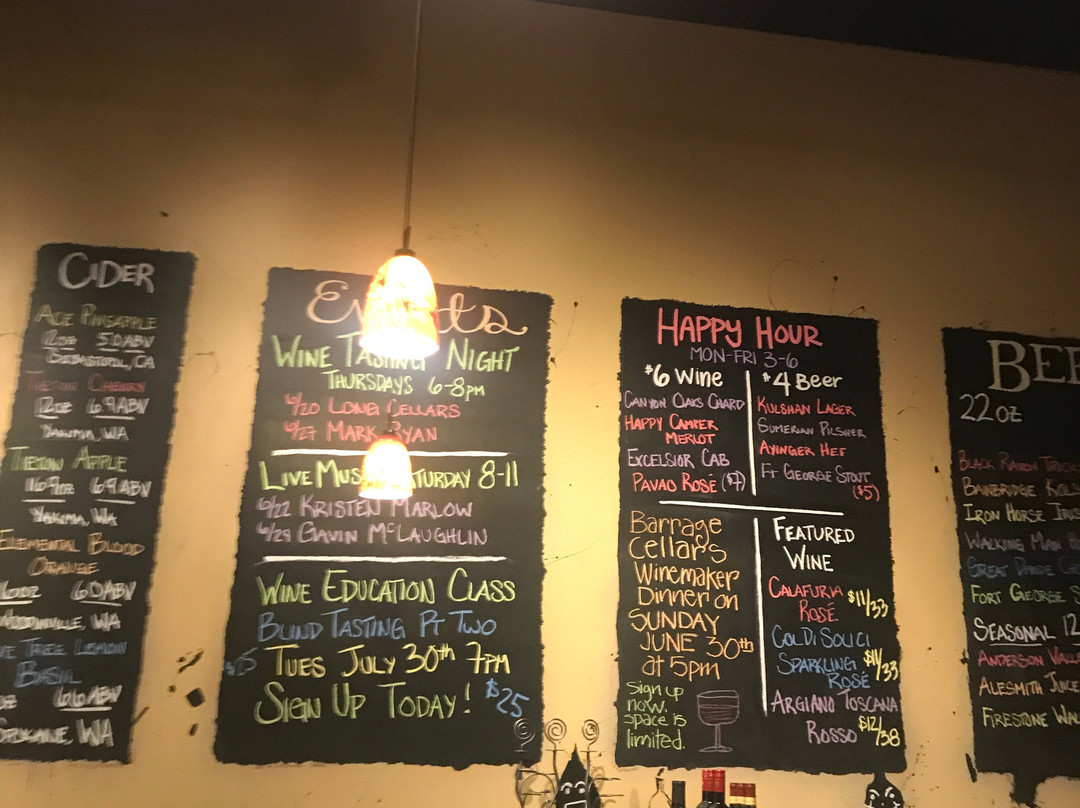 CIDER
ACE PINEAPPLE
12OZ 5.0ABV
SEBASTOPOL, CA
TIETON CHERRY
12OZ 6.9ABV
YAKIMA, WA
TIETON APPLE
16.9OZ 6.9ABV
YAKIMA, WA
ELEMENTAL BLOOD
ORANGE
6.0ABV
WOODINVILLE, WA
TREE LEMON
BASIL
6.6ABV
SPOKANE, WA
Events
WINE TASTING NIGHT
THURSDAYS 6-8PM
6/20 LONG CELLARS
6/27 MARK RYAN
LIVE MUSIC SATURDAY 8-11
6/22 KRISTEN MARLOW
6/29 GAVIN McLAUGHLIN
WINE EDUCATION CLASS
BLIND TASTING PT TWO
TUES JULY 30th 7PM
SIGN UP TODAY! $25
HAPPY HOUR
MON-FRI 3-6
$6 Wine
CANYON OAKS CHARD
HAPPY CAMPER
MERLOT
EXCELSIOR CAB
PAVAO ROSE ($7)
$4 Beer
KULSHAN LAGER
SUMERIAN PILSNER
AYINGER HEF
FT. GEORGE STOUT
($5)
Barrage
Cellars
Winemaker
Dinner on
SUNDAY
JUNE 30th
at 5pm
sign up
now.
space is
limited.
FEATURED
WINE
CALAFURIA
ROSÉ $11/33
COL DI SOLICI
SPARKLING
ROSÉ $11/33
ARGIANO TOSCANA
ROSSO $12/38
BEE
22OZ
BLACK RAVEN
BAINBRIDGE KOLS
IRON HORSE IRIS
WALKING MAN
GREAT DIVIDE
FORT GEORGE S
SEASONAL 12
ANDERSON VALLE
ALESMITH JUICE
FIRESTONE WAL